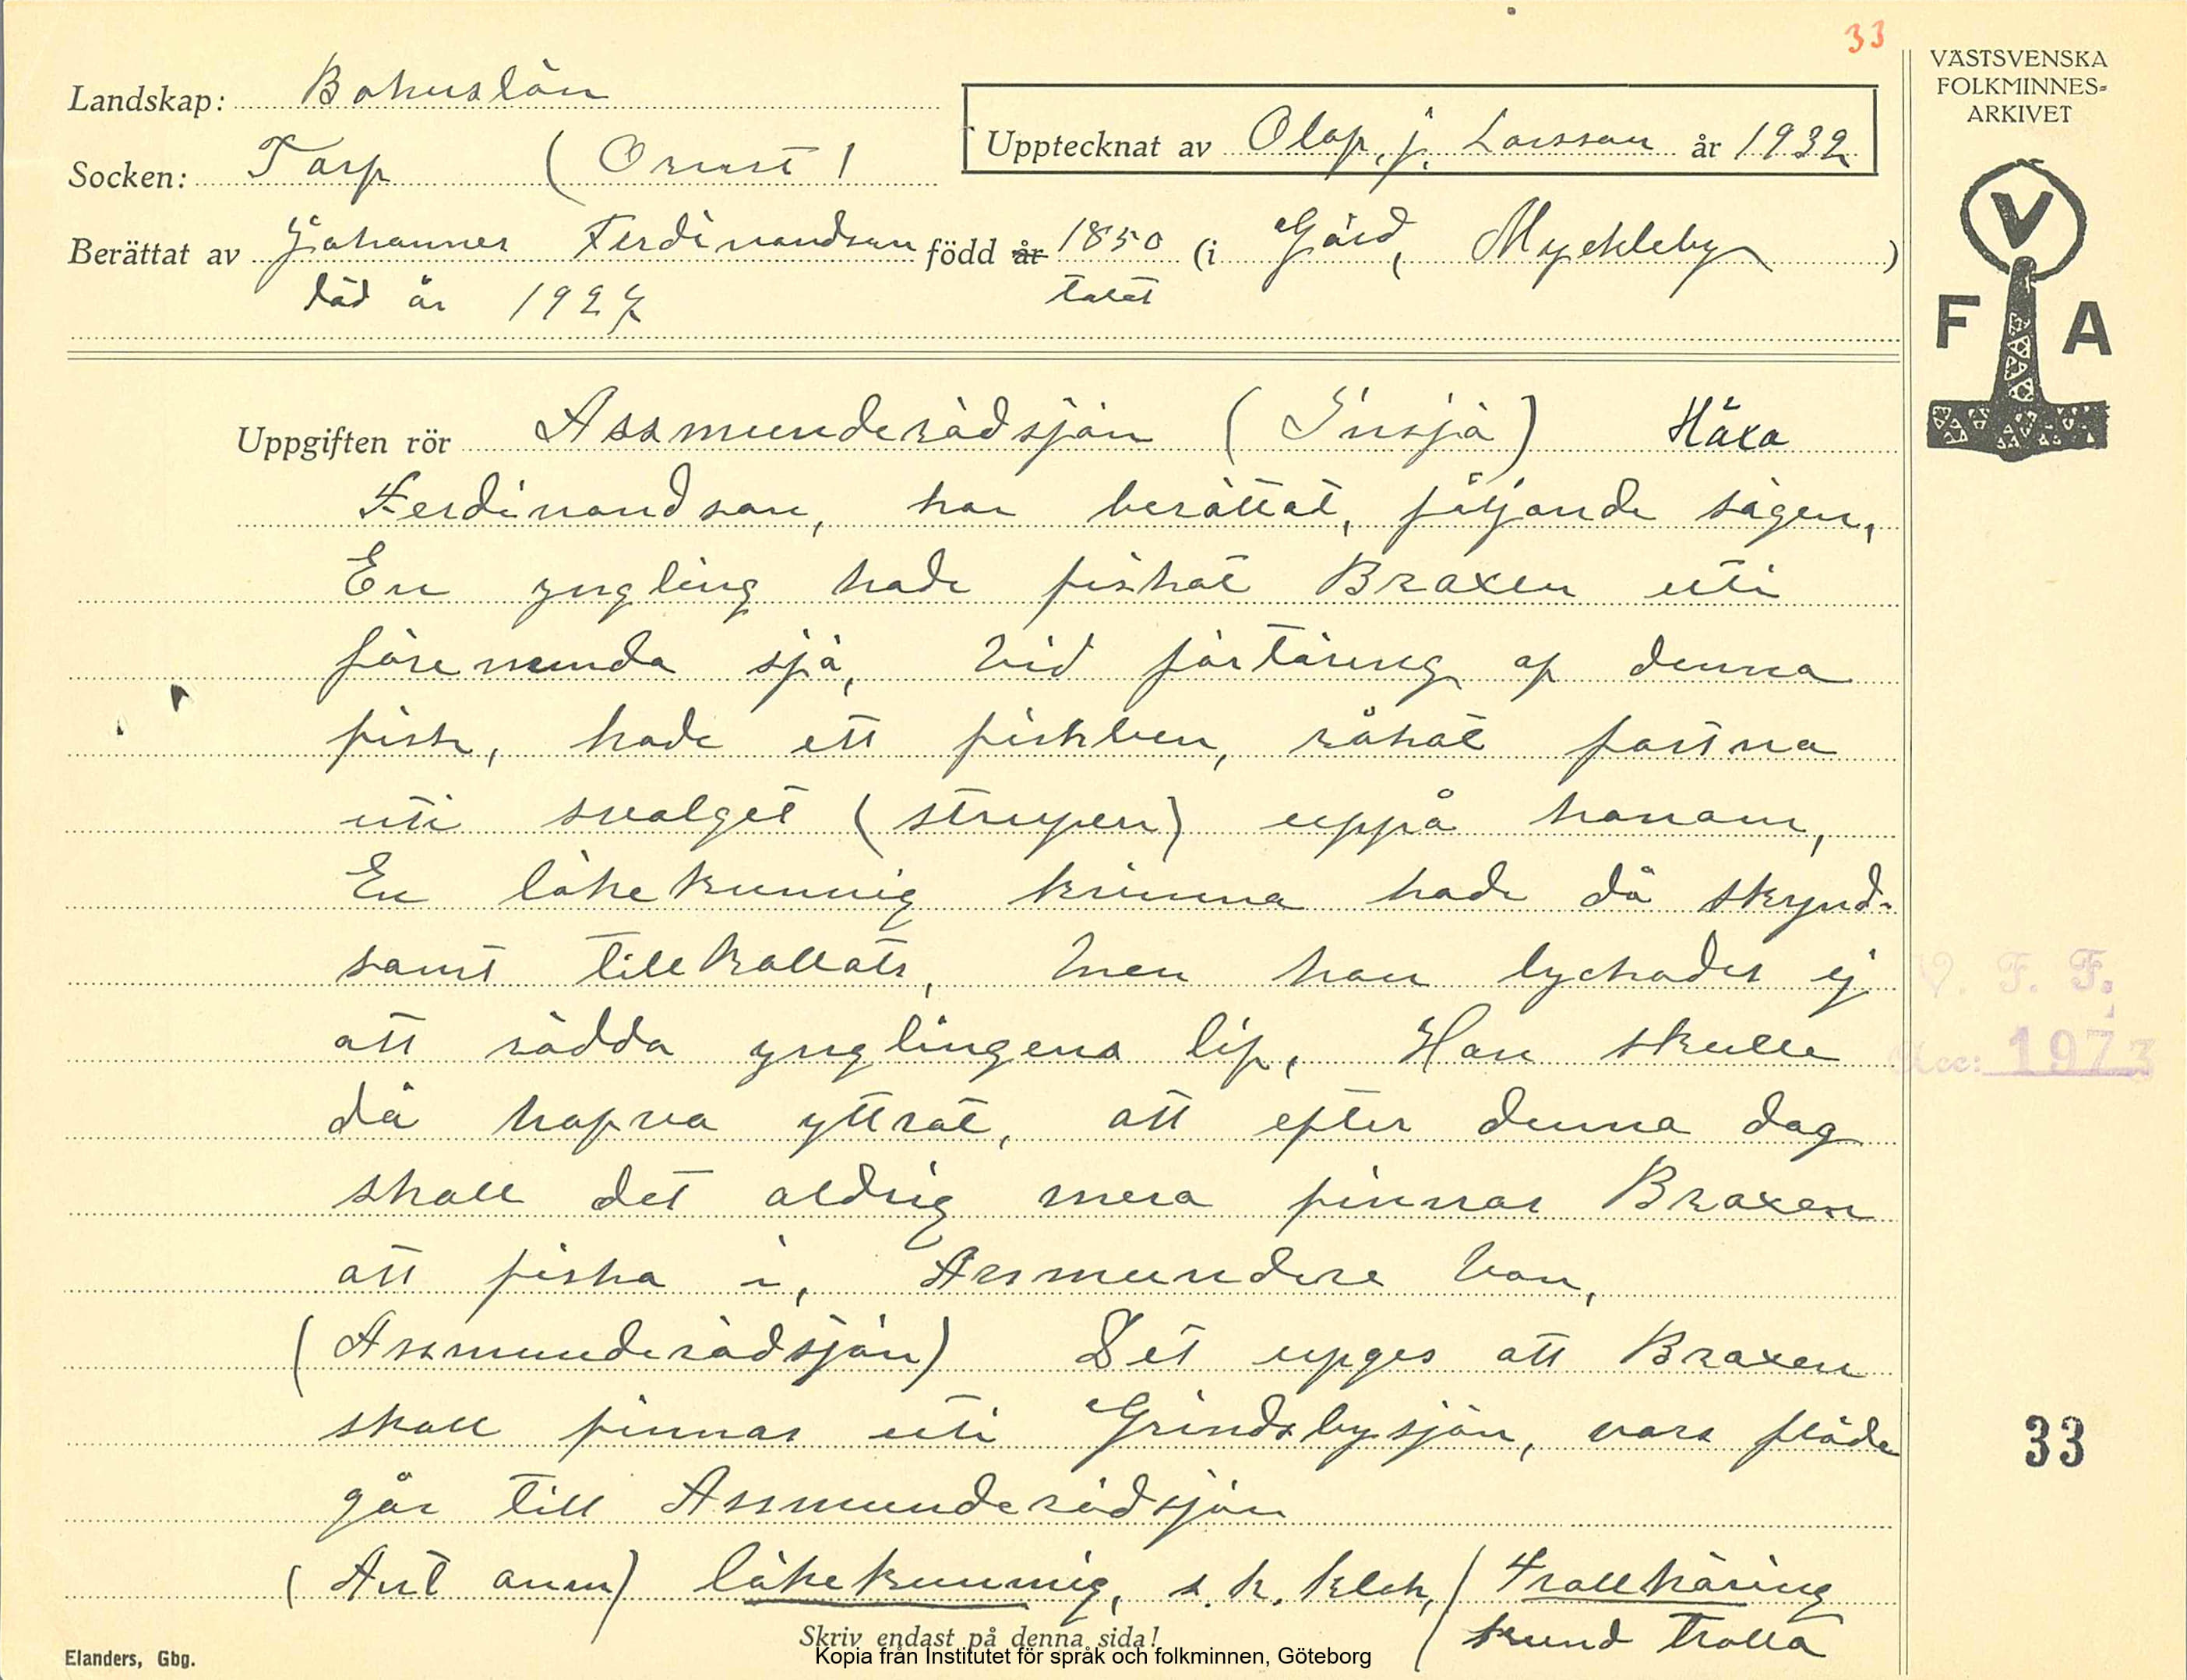 33
VÄSTSVENSKA
FOLKMINNES-
ARKIVET
Landskap: Bohuslän
Upptecknat av Olof. j. Larsson år 1932
Socken: Torp (Orust)
Berättat av Johannes Ferdinandson född år 1850 (i Gård, Myckleby)
död år 1927 talet
V
F A
Uppgiften rör Assmunderödsjön (Insjö) Häxa
Ferdinandson, har berättat, följande sägen,
En yngling hade fiskat Braxen uti
förenemnda sjö, Vid förtäring af denna
fisk, hade ett fiskben, råkat fastna
uti svalget (strupen) uppå honom,
En läkekunnig kvinna hade då skynd-
samt tillkallats, Men hon lyckades ej
att rädda ynglingens lif, Hon skulle
då hafva yttrat, att efter denna dag
skall det aldrig mera finnas Braxen
att fiska i, Assmundere Van,
(Assmunderödsjön) Det upges att Braxen
skall finnas uti Grindsbysjön, vars flöde
går till Assmunderödsjön
(Ant anm) läkekunnig, s. k. klok, (Trollkäring
(kund Trolla
V. F. F.
Acc: 1973
33
Skriv endast på denna sida!
Elanders, Gbg.
Kopia från Institutet för språk och folkminnen, Göteborg